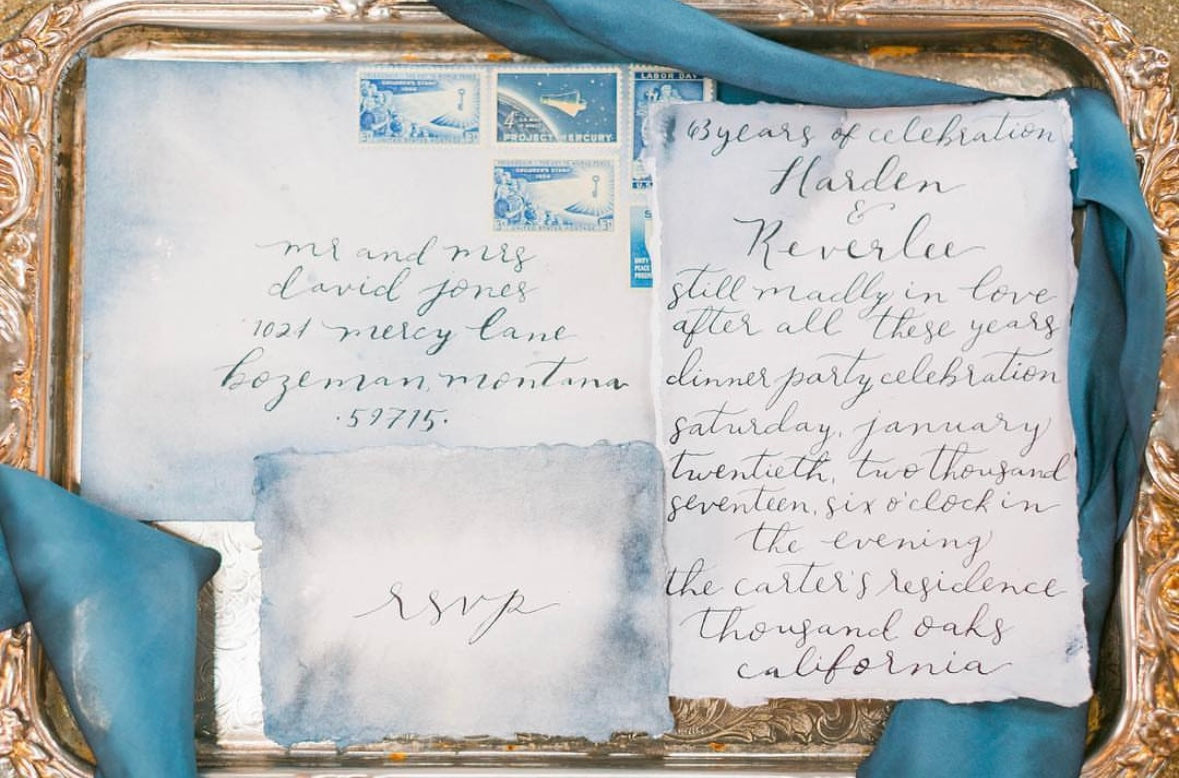 CHILDREN'S STAMP
UNITED STATES POSTAGE
4¢
PROJECT MERCURY
LABOR DAY
CHILDREN'S STAMP
UNITED STATES POSTAGE
mr and mrs
david jones
1021 mercy lane
bozeman, montana
·59715·
rsvp
63 years of celebration
Harden
&
Reverlee
still madly in love
after all these years
dinner party celebration
saturday, january
twentieth, two thousand
seventeen, six o'clock in
the evening
the carter's residence
thousand oaks
california